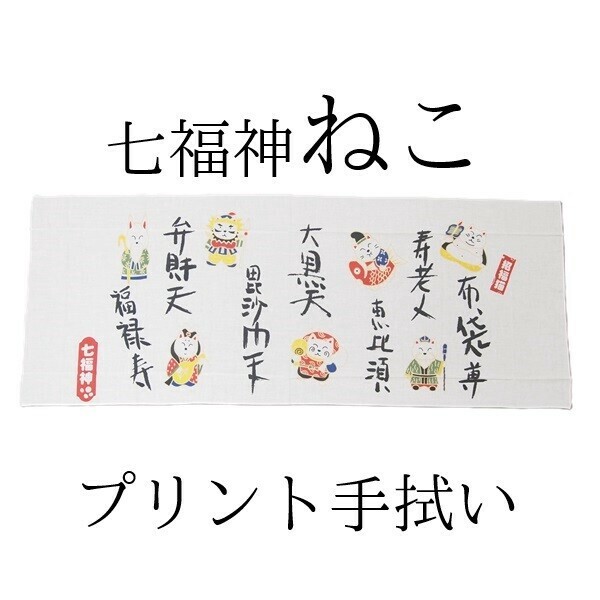 七福神ねこ
招福猫
布袋尊
寿老人
恵比須
大黒天
毘沙门天
弁財天
福禄寿
七福神
プリント手拭い